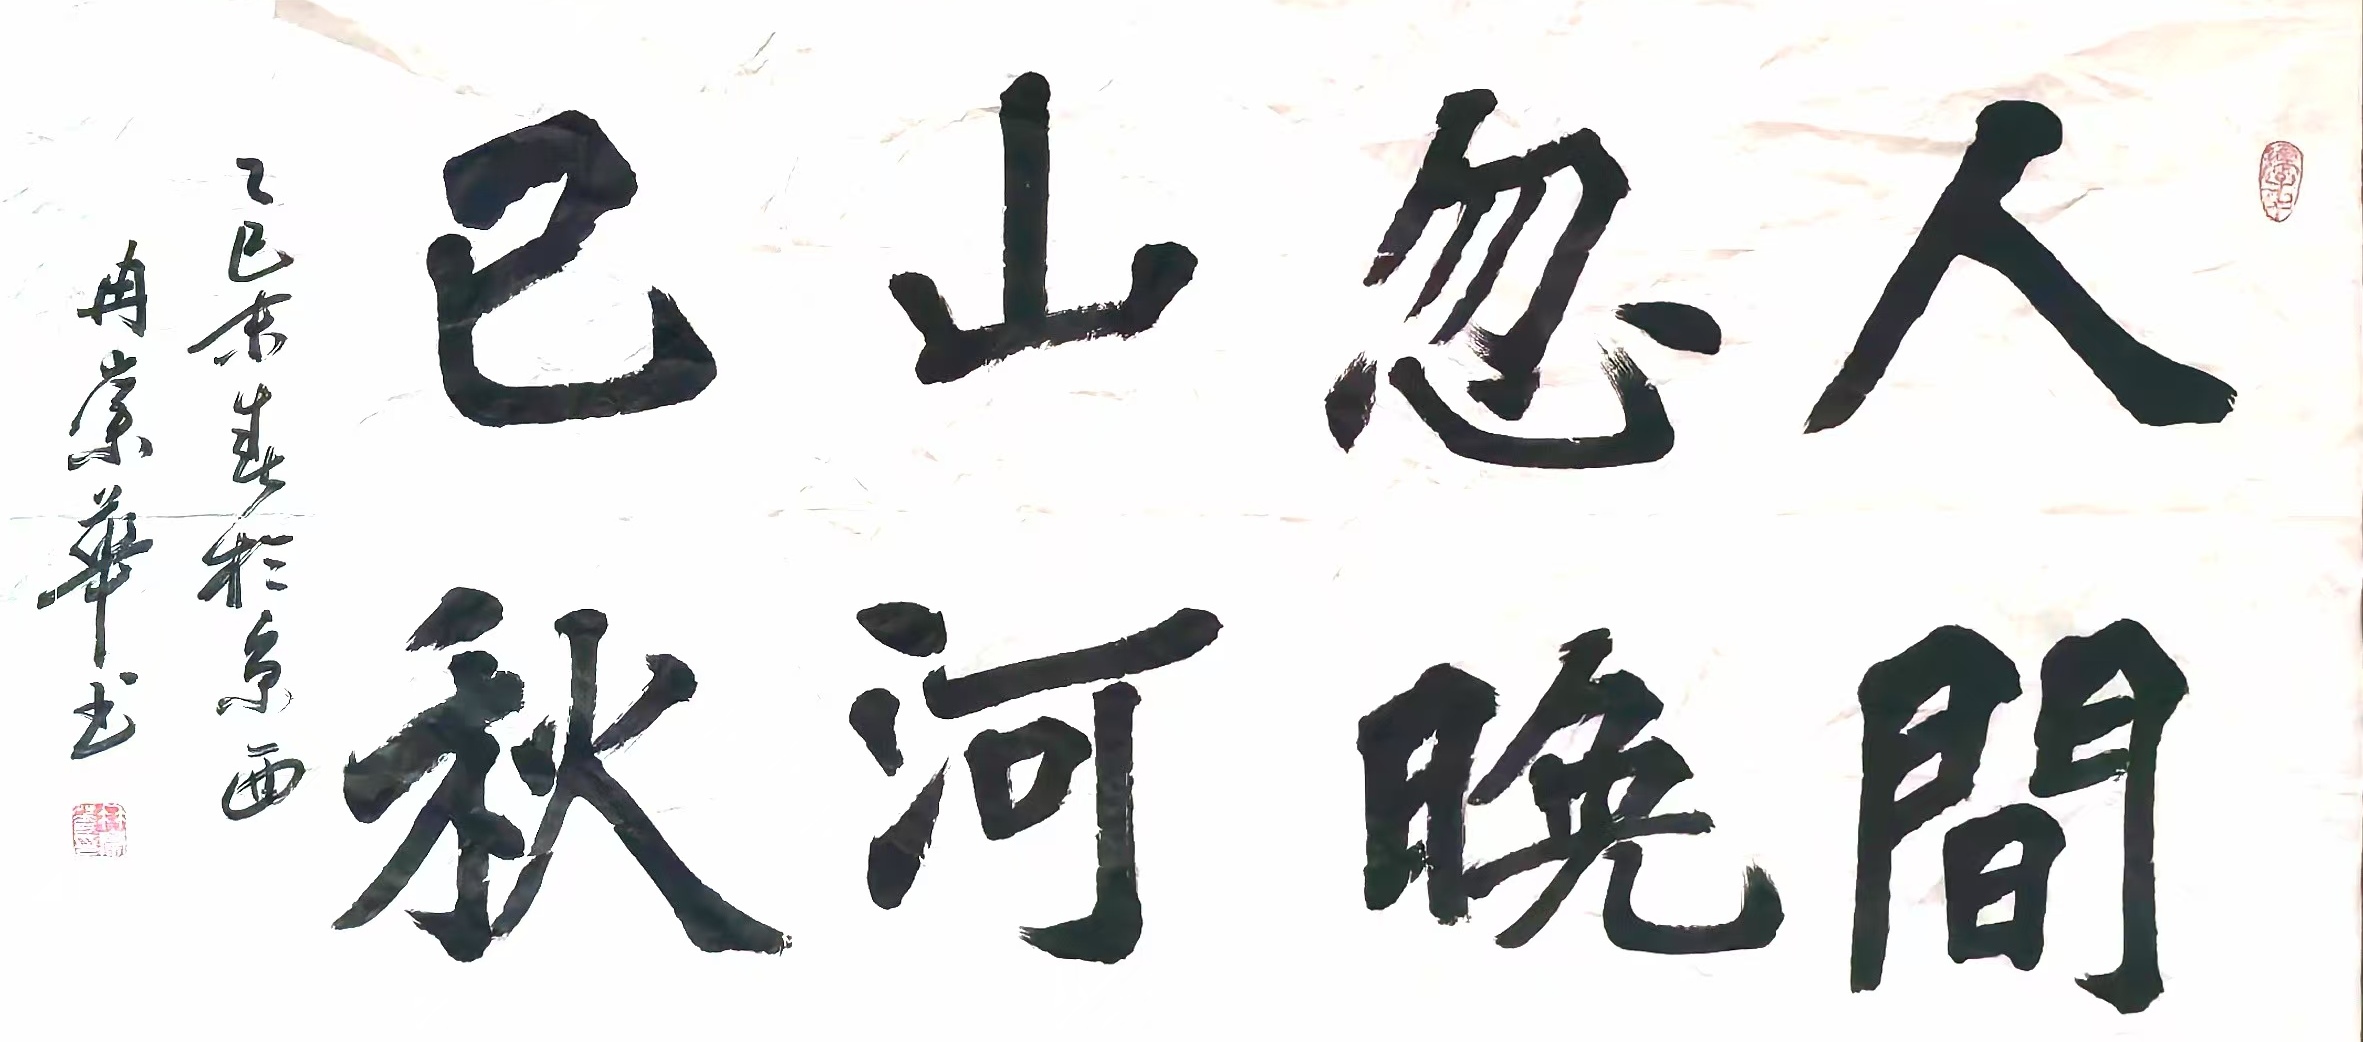 人間
忽晚
山河
已秋
乙巳末春於京西
冉崇華书